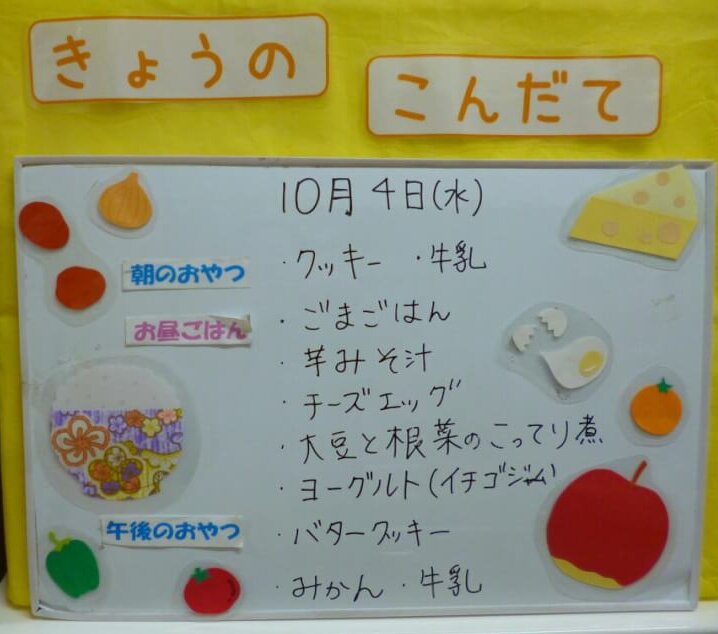 きょうの
こんだて
10月4日(水)
朝のおやつ ・クッキー ・牛乳
お昼ごはん ・ごまごはん
・芋みそ汁
・チーズエッグ
・大豆と根菜のこってり煮
・ヨーグルト(イチゴジャム)
午後のおやつ ・バタークッキー
・みかん ・牛乳